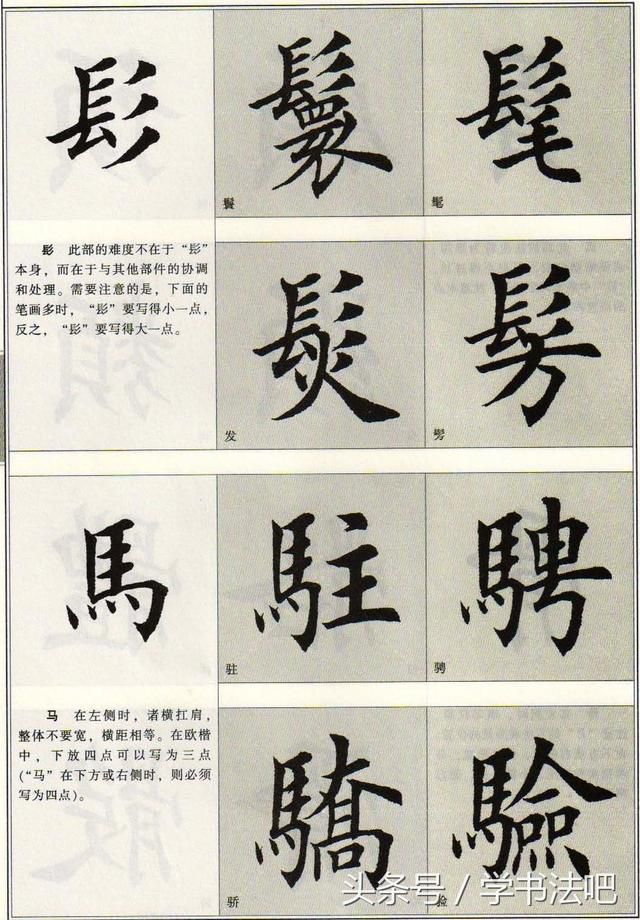 髟
鬟
髦
鬟
髦
髟 此部的难度不在于“髟”
本身，而在于与其他部件的协调
和处理。需要注意的是，下面的
笔画多时，“髟”要写得小一点，
反之，“髟”要写得大一点。
髮
髣
发
髣
馬
駐
騁
驻
骋
马 在左侧时，诸横扛肩，
整体不要宽，横距相等。在欧楷
中，下放四点可以写为三点
(“马”在下方或右侧时，则必须
写为四点)。
驕
驗
骄
验
头条号／学书法吧